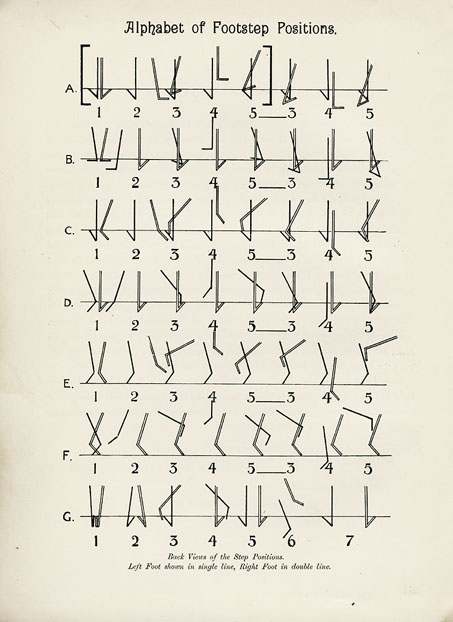 Alphabet of Footstep Positions.
A. 1 2 3 4 5 3 4 5
B. 1 2 3 4 5 3 4 5
C. 1 2 3 4 5 3 4 5
D. 1 2 3 4 5 3 4 5
E. 1 2 3 4 5 3 4 5
F. 1 2 3 4 5 3 4 5
G. 1 2 3 4 5 6 7
Back Views of the Step Positions.
Left Foot shown in single line, Right Foot in double line.